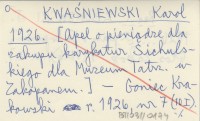 KWAŚNIEWSKI Karol
1926. [Apel o pieniądze dla
zakupu karykatur Sichuls-
kiego dla Muzeum Tatrz. w
Zakopanem.] — Goniec Kra-
kowski r. 1926, nr 7 (10.I).